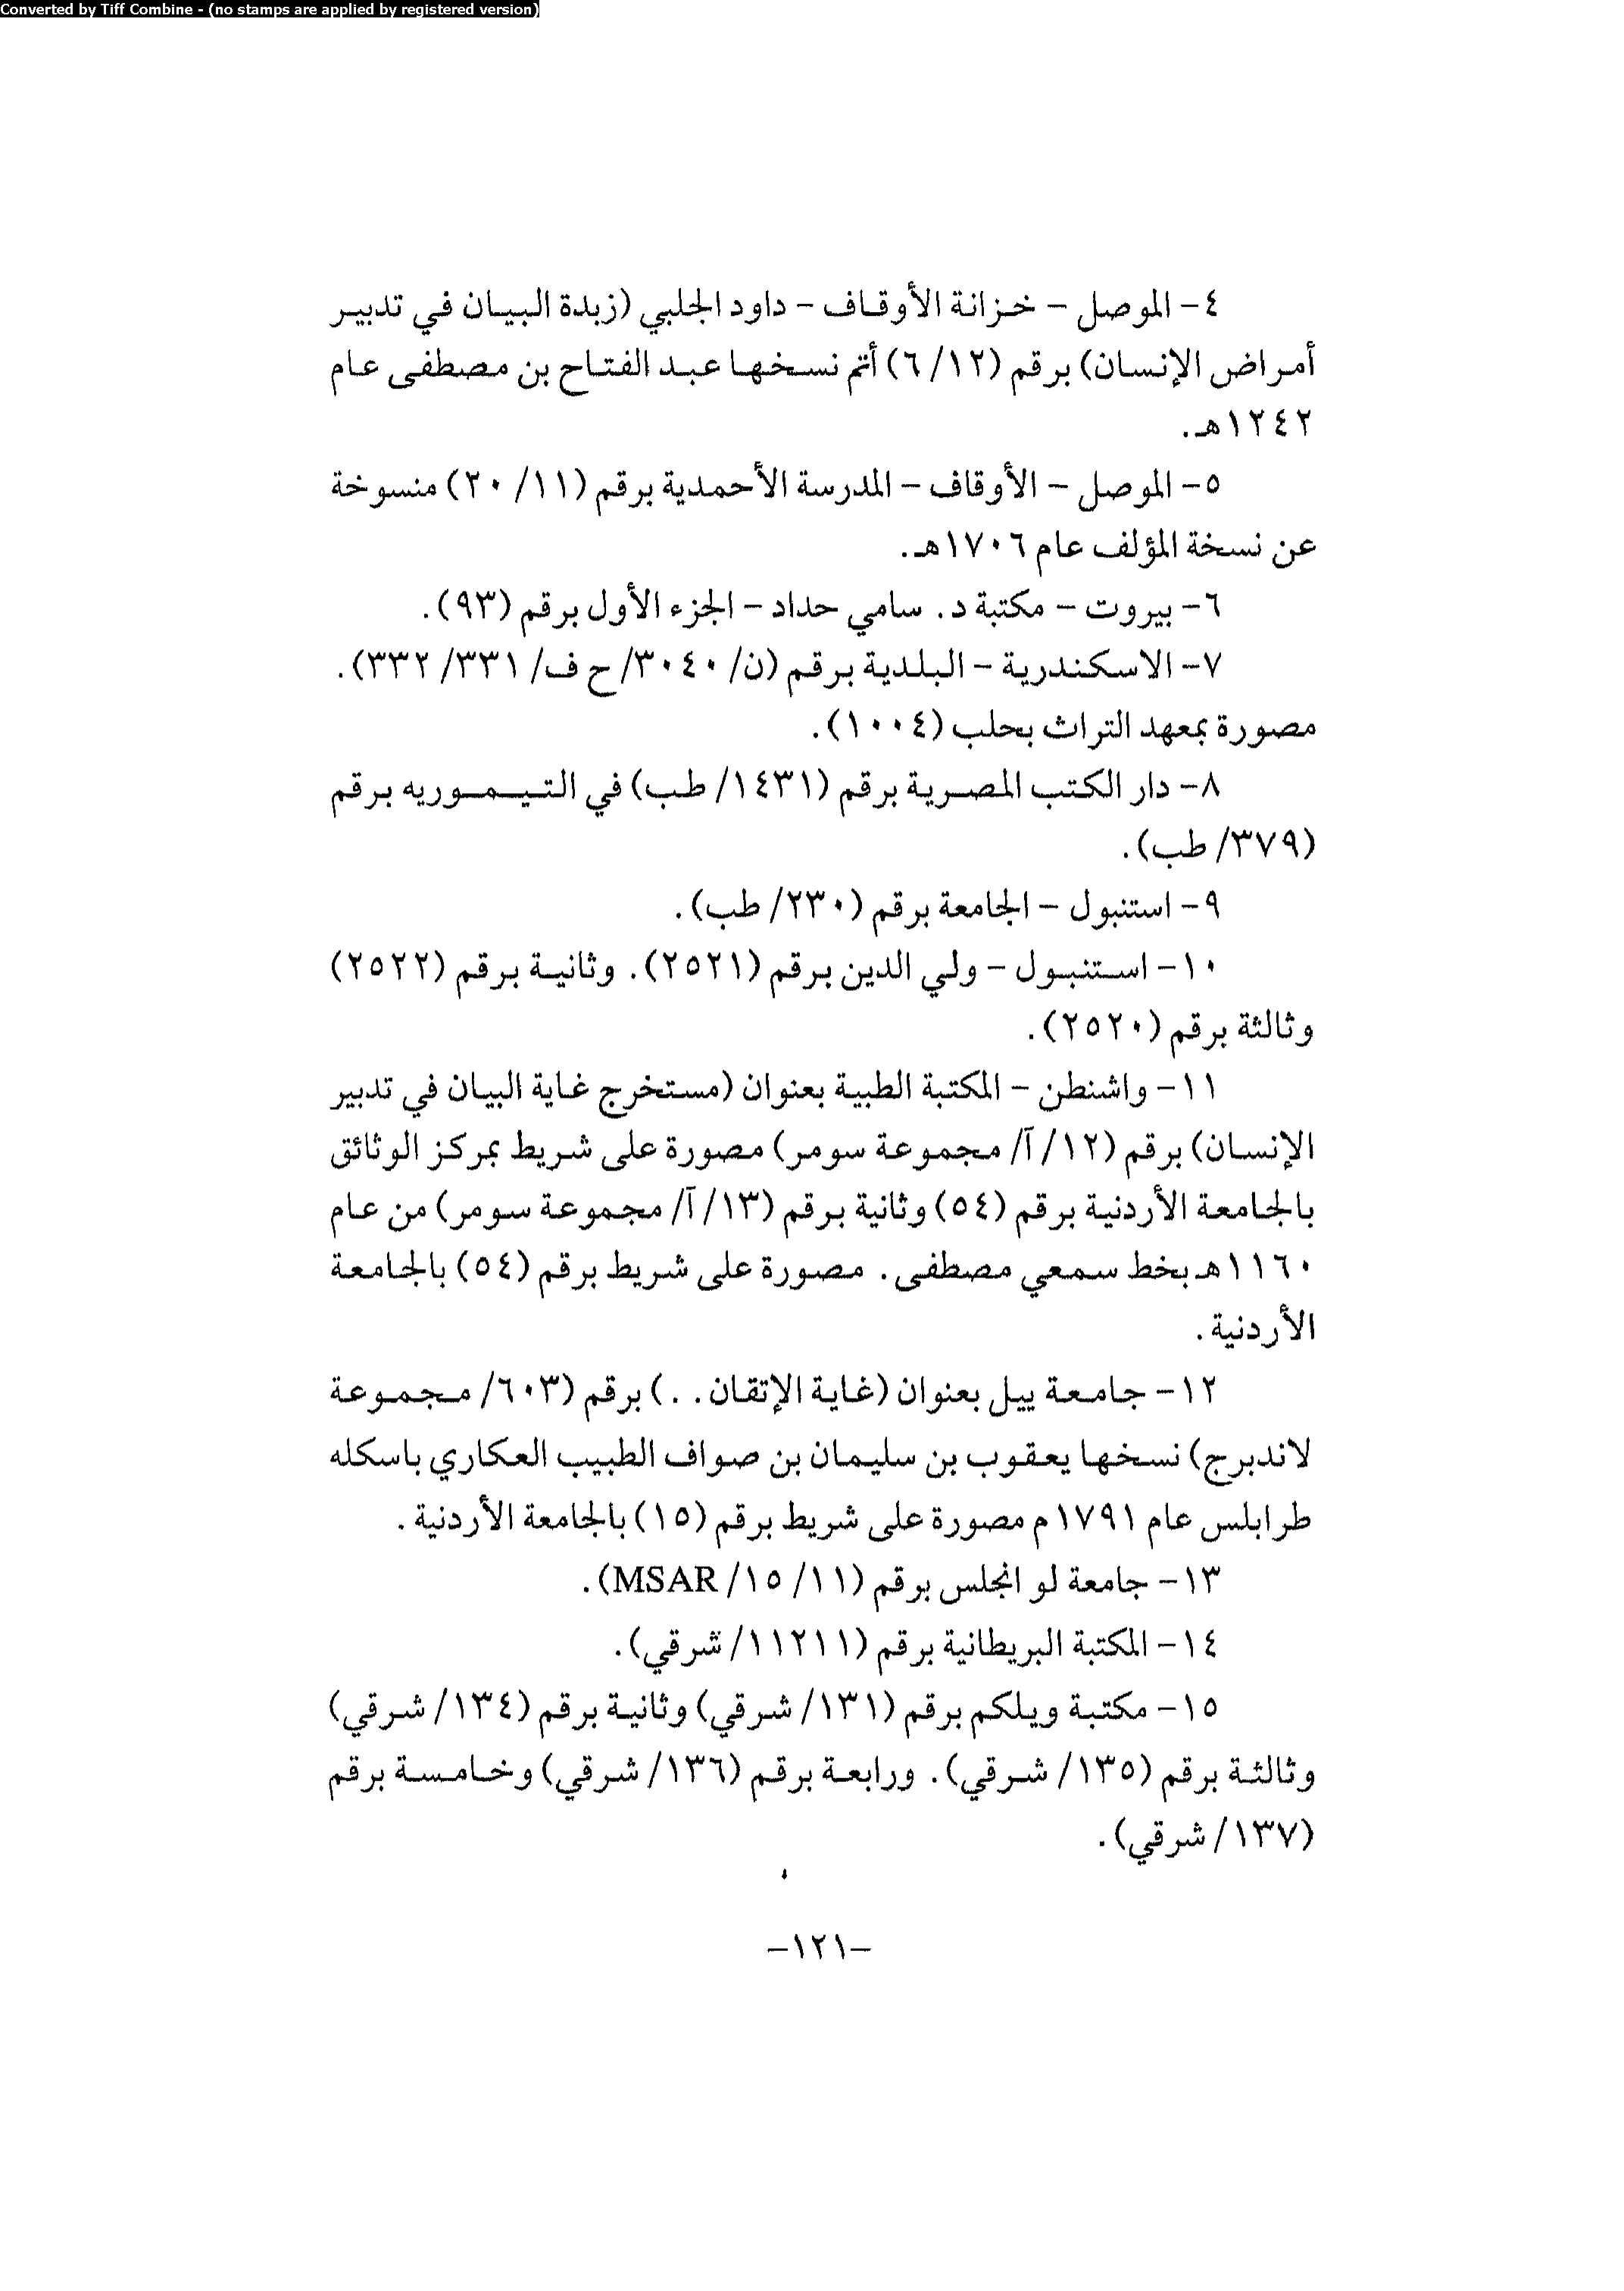 Converted by Tiff Combine - (no stamps are applied by registered version)
٤- الموصل - خزانة الأوقاف - داود الجلبي (زبدة البيان في تدبير
أمراض الإنسان) برقم (٦/١٢) أتم نسخها عبد الفتاح بن مصطفى عام
١٢٤٢هـ.
٥- الموصل - الأوقاف - المدرسة الأحمدية برقم (٢٠/١١) منسوخة
عن نسخة المؤلف عام ١٧٠٦هـ.
٦- بيروت - مكتبة د. سامي حداد - الجزء الأول برقم (٩٣).
٧- الاسكندرية - البلدية برقم (ن/ ٣٠٤٠/ ح ف/ ٣٣١/ ٣٣٢).
مصورة بمعهد التراث بحلب (١٠٠٤).
٨- دار الكتب المصرية برقم (١٤٣١/ طب) في التيموريه برقم
(٣٧٩/ طب).
٩- استنبول - الجامعة برقم (٢٣٠/ طب).
١٠- استنبول - ولي الدين برقم (٢٥٢١). وثانية برقم (٢٥٢٢)
وثالثة برقم (٢٥٢٠).
١١- واشنطن - المكتبة الطبية بعنوان (مستخرج غاية البيان في تدبير
الإنسان) برقم (١٢/ آ/ مجموعة سومر) مصورة على شريط بمركز الوثائق
بالجامعة الأردنية برقم (٥٤) وثانية برقم (١٣/ آ/ مجموعة سومر) من عام
١١٦٠هـ بخط سمعي مصطفى. مصورة على شريط برقم (٥٤) بالجامعة
الأردنية.
١٢- جامعة ييل بعنوان (غاية الإتقان. .) برقم (٦٠٣/ مجموعة
لاندبرج) نسخها يعقوب بن سليمان بن صواف الطبيب العكاري باسكله
طرابلس عام ١٧٩١م مصورة على شريط برقم (١٥) بالجامعة الأردنية.
١٣- جامعة لو انجلس برقم (١١/ ١٥/ MSAR).
١٤- المكتبة البريطانية برقم (١١٢١١/ شرقي).
١٥- مكتبة ويلكم برقم (١٣١/ شرقي) وثانية برقم (١٣٤/ شرقي)
وثالثة برقم (١٣٥/ شرقي). ورابعة برقم (١٣٦/ شرقي) وخامسة برقم
(١٣٧/ شرقي).
-١٢١-